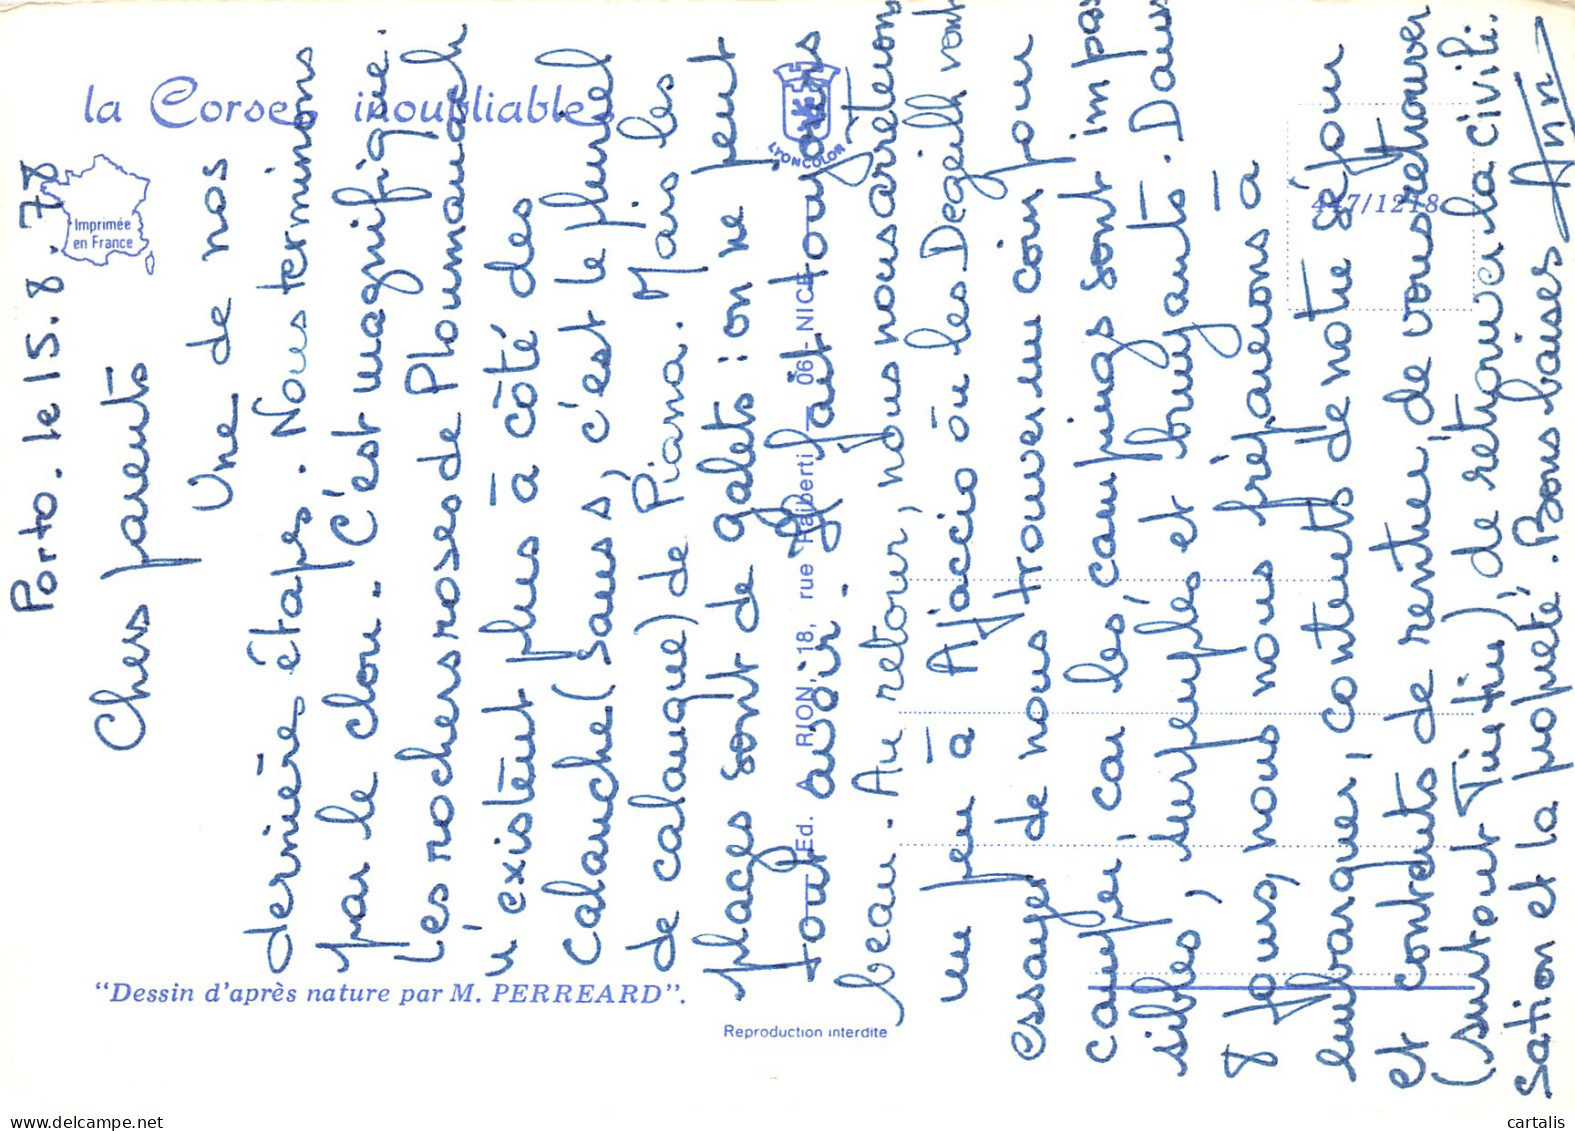 la Corse inoubliable
Imprimée
en France
LYONCOLOR
447/1218
Ed. A. RION, 18, rue Raiberti - 06 - NICE
"Dessin d'après nature par M. PERREARD".
Reproduction interdite
Porto. le 15.8.78
Chers parents
Une de nos
dernières étapes. Nous terminons
par le clou. C'est magnifique.
Les rochers roses de Ploumanach
n'existent plus à côté des
calanche (sans s, c'est le pluriel
de calanque) de Piana. Mais les
plages sont de galets : on ne peut
tout avoir. Il fait toujours
beau. Au retour, nous nous arreterons
un peu à Ajaccio où les Degeilh vont
essayer de nous trouver un coin pour
camper, car les campings sont impos
sibles, surpeuplés et bruyants. Dans
8 jours, nous nous préparerons à
embarquer, contents de notre séjour
et contents de rentrer, de vous retrouver
(surtout Tintin) de retrouver la civili.
sation et la propreté. Bons baisers Ann
cartalis